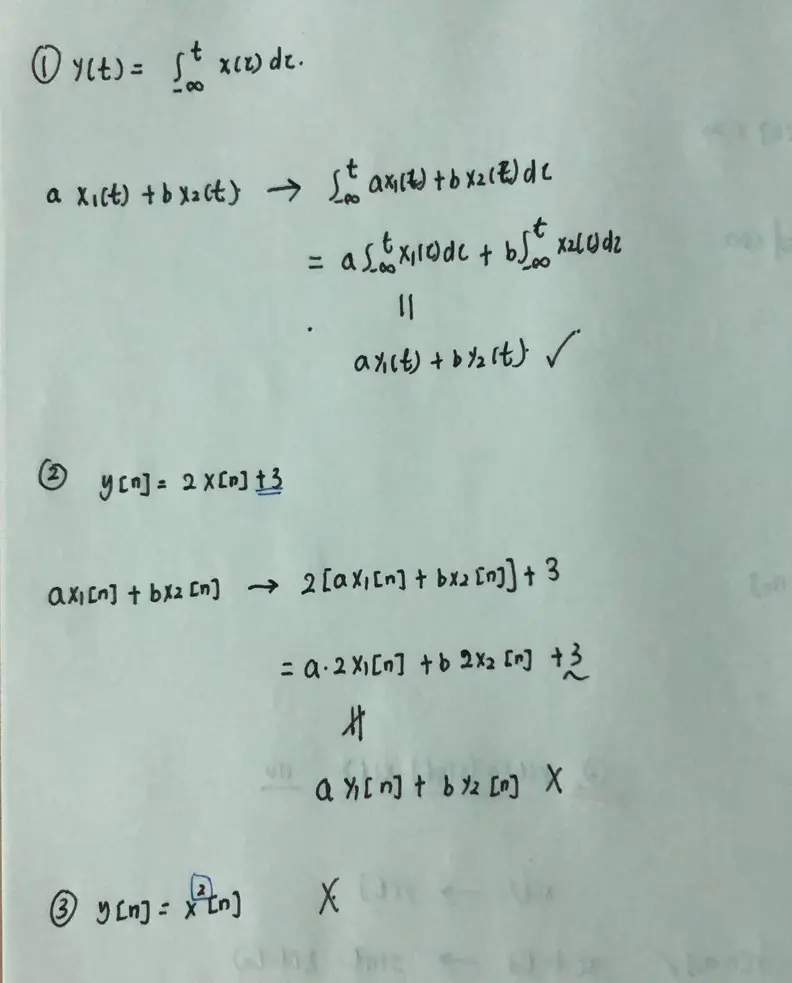 ① y(t) = ∫_{-∞}^{t} x(τ) dτ.
a x₁(t) + b x₂(t) → ∫_{-∞}^{t} ax₁(τ) + b x₂(τ) dτ
= a∫_{-∞}^{t} x₁(τ)dτ + b∫_{-∞}^{t} x₂(τ)dτ
||
a y₁(t) + b y₂(t) ✓
② y[n] = 2 x[n] + 3
ax₁[n] + bx₂[n] → 2[ax₁[n] + bx₂[n]] + 3
= a·2x₁[n] + b 2x₂[n] + 3
∦
a y₁[n] + b y₂[n] X
③ y[n] = x²[n] X